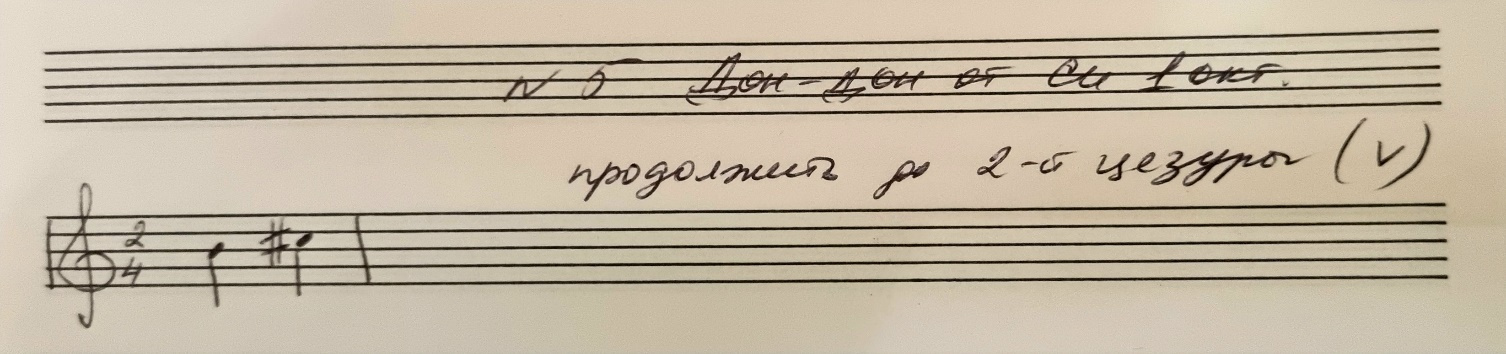 № 5 Дон-дон от си 1 окт.
продолжить до 2-й цезуры (V)
2
4